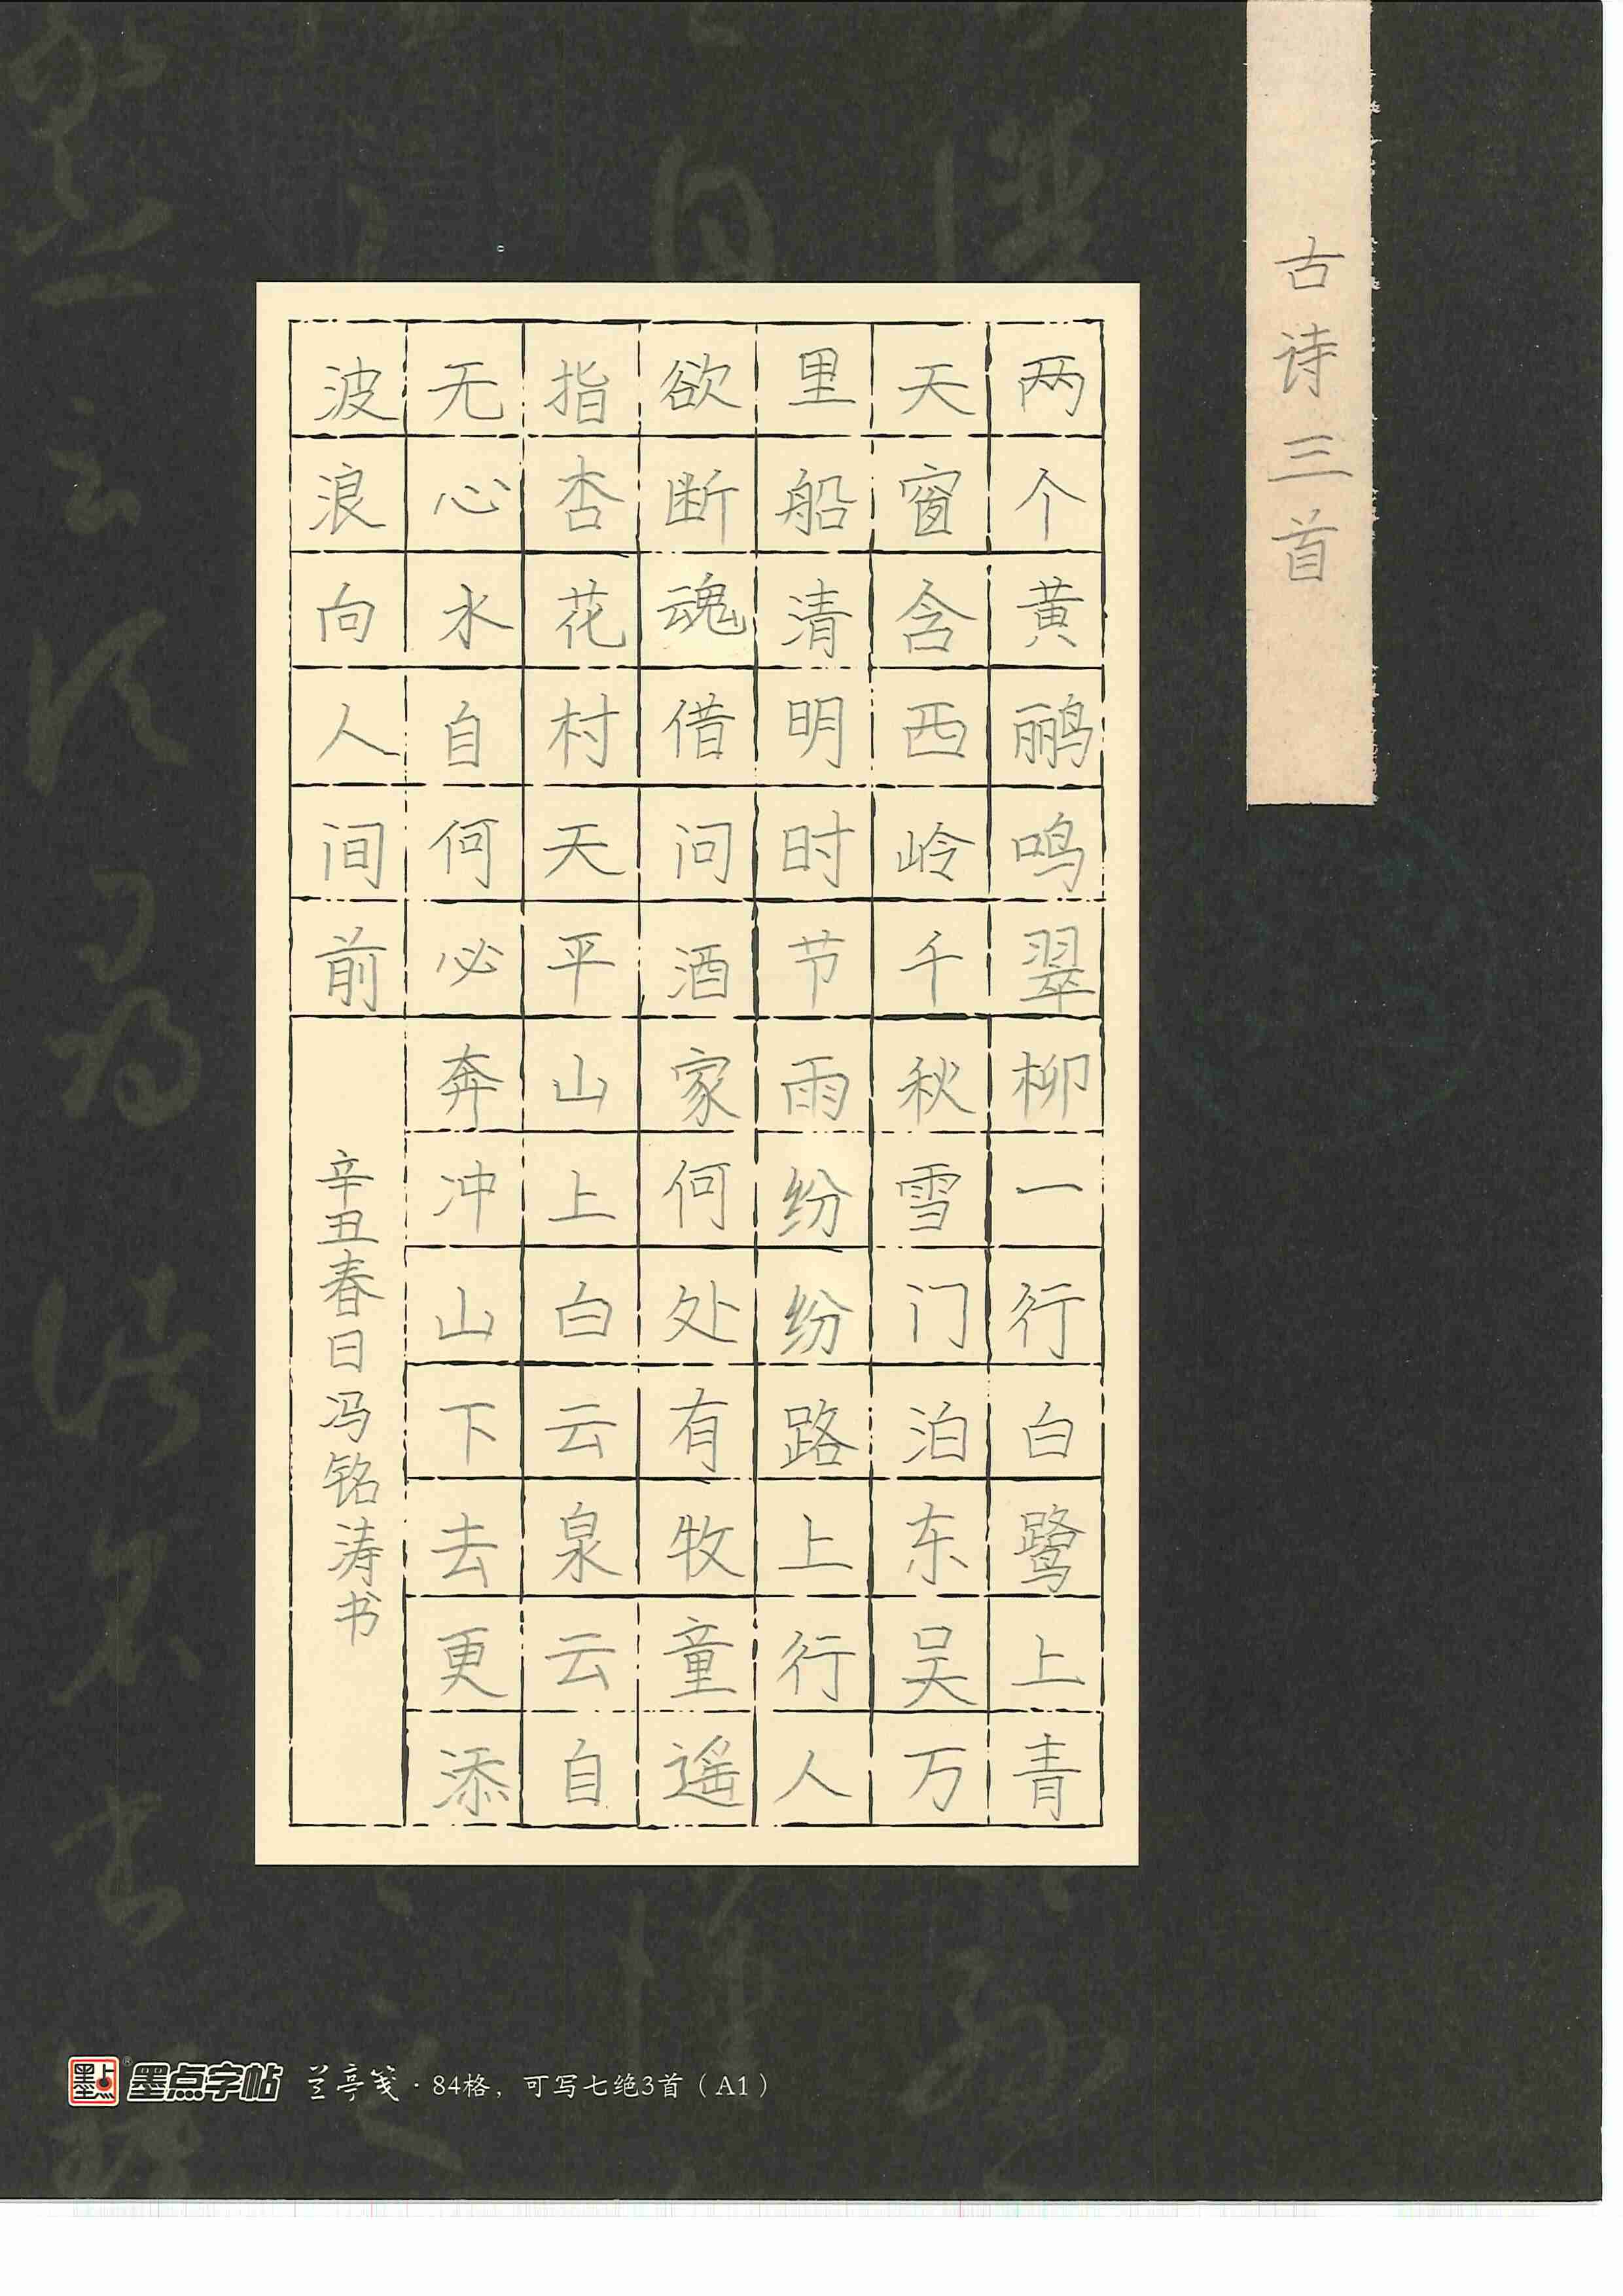 古诗三首
两个黄鹂鸣翠柳一行白鹭上青
天窗含西岭千秋雪门泊东吴万
里船清明时节雨纷纷路上行人
欲断魂借问酒家何处有牧童遥
指杏花村天平山上白云泉云自
无心水自何必奔冲山下去更添
波浪向人间前
辛丑春日冯铭涛书
墨点字帖 兰亭笺·84格，可写七绝3首（A1）